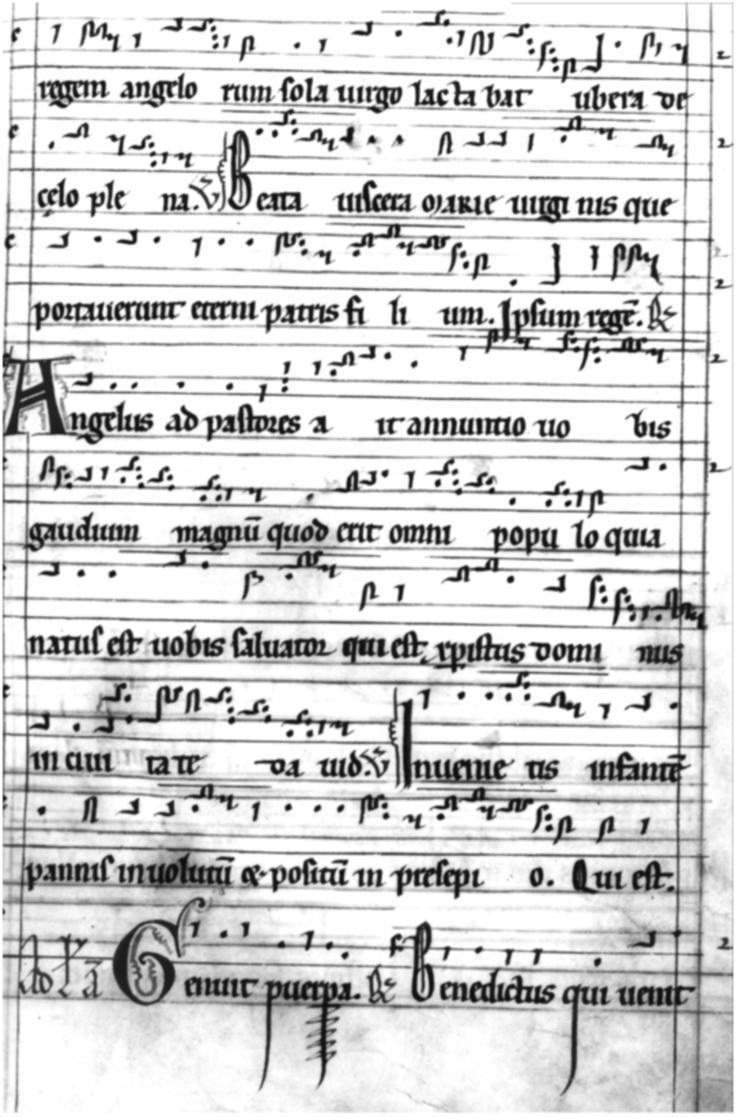 regem angelo rum sola uirgo lacta bat ubera de
celo ple na. V Beata uiscera marie uirgi nis que
portauerunt eterni patris fi li um. Ipsum regē. R
Angelus ad pastores a it annuntio uo bis
gaudium magnū quod erit omni popu lo quia
natus est uobis saluator qui est xpistus domi nus
in ciui ta te da uid. V Inuenie tis infantē
pannis inuolutū & positū in presepi o. Qui est.
Genuit puerpa. R Benedictus qui uenit